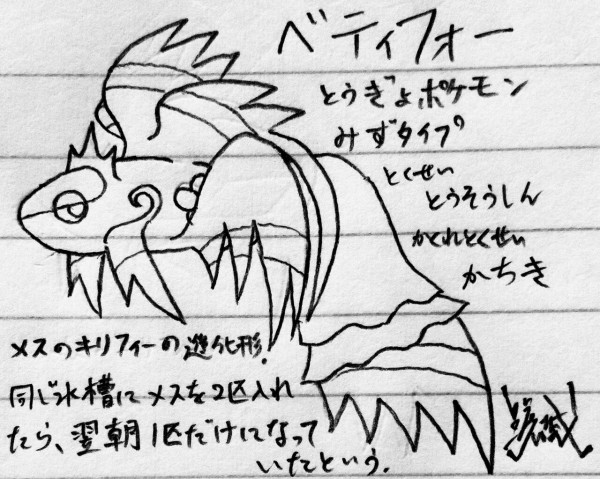 ベティフォー
とうぎょポケモン
みずタイプ
とくせい
とうそうしん
かくれとくせい
かちき
メスのキリフィーの進化形.
同じ水槽にメスを2匹入れ
たら、翌朝1匹だけになって
いたという.